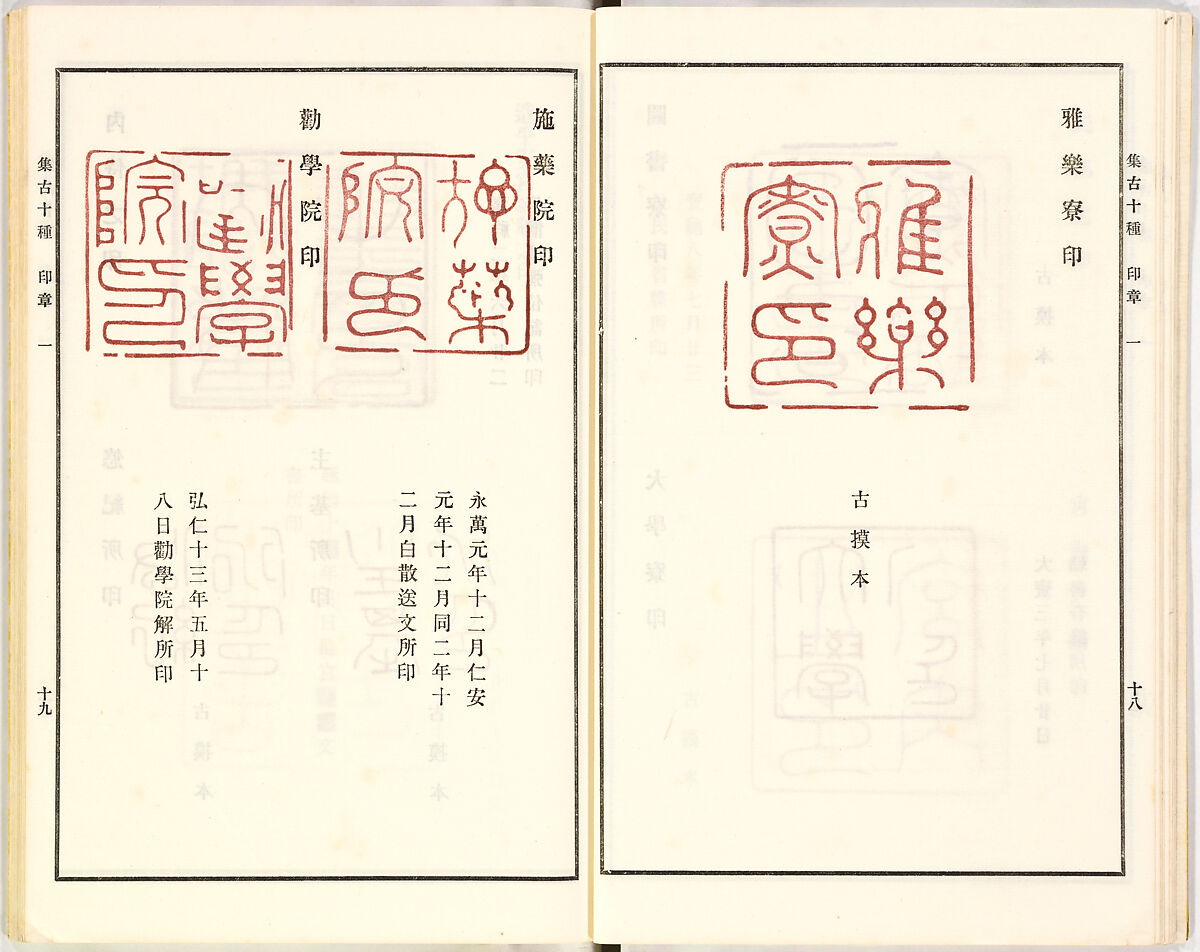 集古十種 印章 一
十八
雅樂寮印
雅樂
寮印
古摸本
施藥院印
施藥
院印
永萬元年十二月仁安
元年十二月同二年十
二月白散送文所印
勸學院印
勸學
院印
弘仁十三年五月十
八日勸學院解所印
集古十種 印章 一
十九